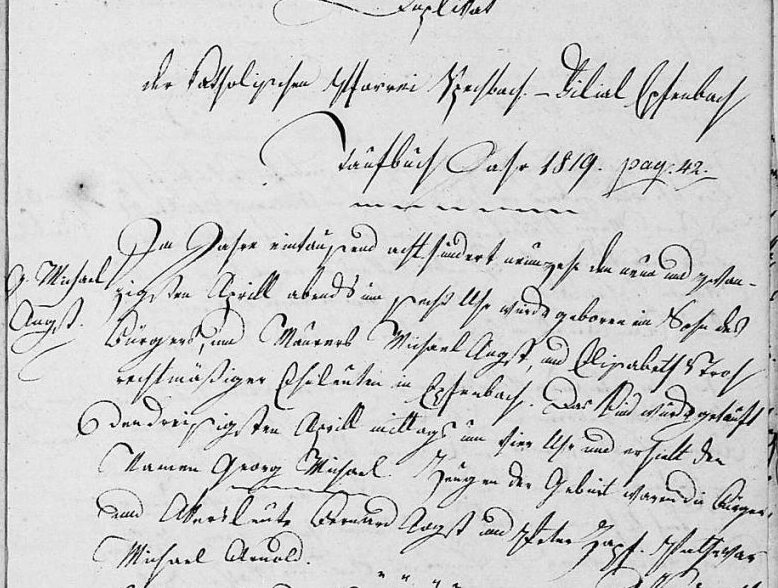 Duplikat
der katholischen Pfarrei Spechbach – Filial Epfenbach
Taufbuch Jahr 1819. pag: 42.
G. Michael
Angst.
Im Jahre eintausend achthundert neunzehn den neun und zwan-
zigsten Aprill abends um sechs Uhr wurde geboren ein Sohn des
Bürgers, und Maurers Michael Angst, und Elisabeth Stroh
rechtmäßiger Eheleuten in Epfenbach. Das Kind wurde getauft
den dreisigsten Aprill mittags um vier Uhr und erhielt den
Namen Georg Michael. Zeugen der Geburt waren die Bürger,
und Akersleute Bernard Angst und Peter Zapf. Pathe war
Michael Arnold.